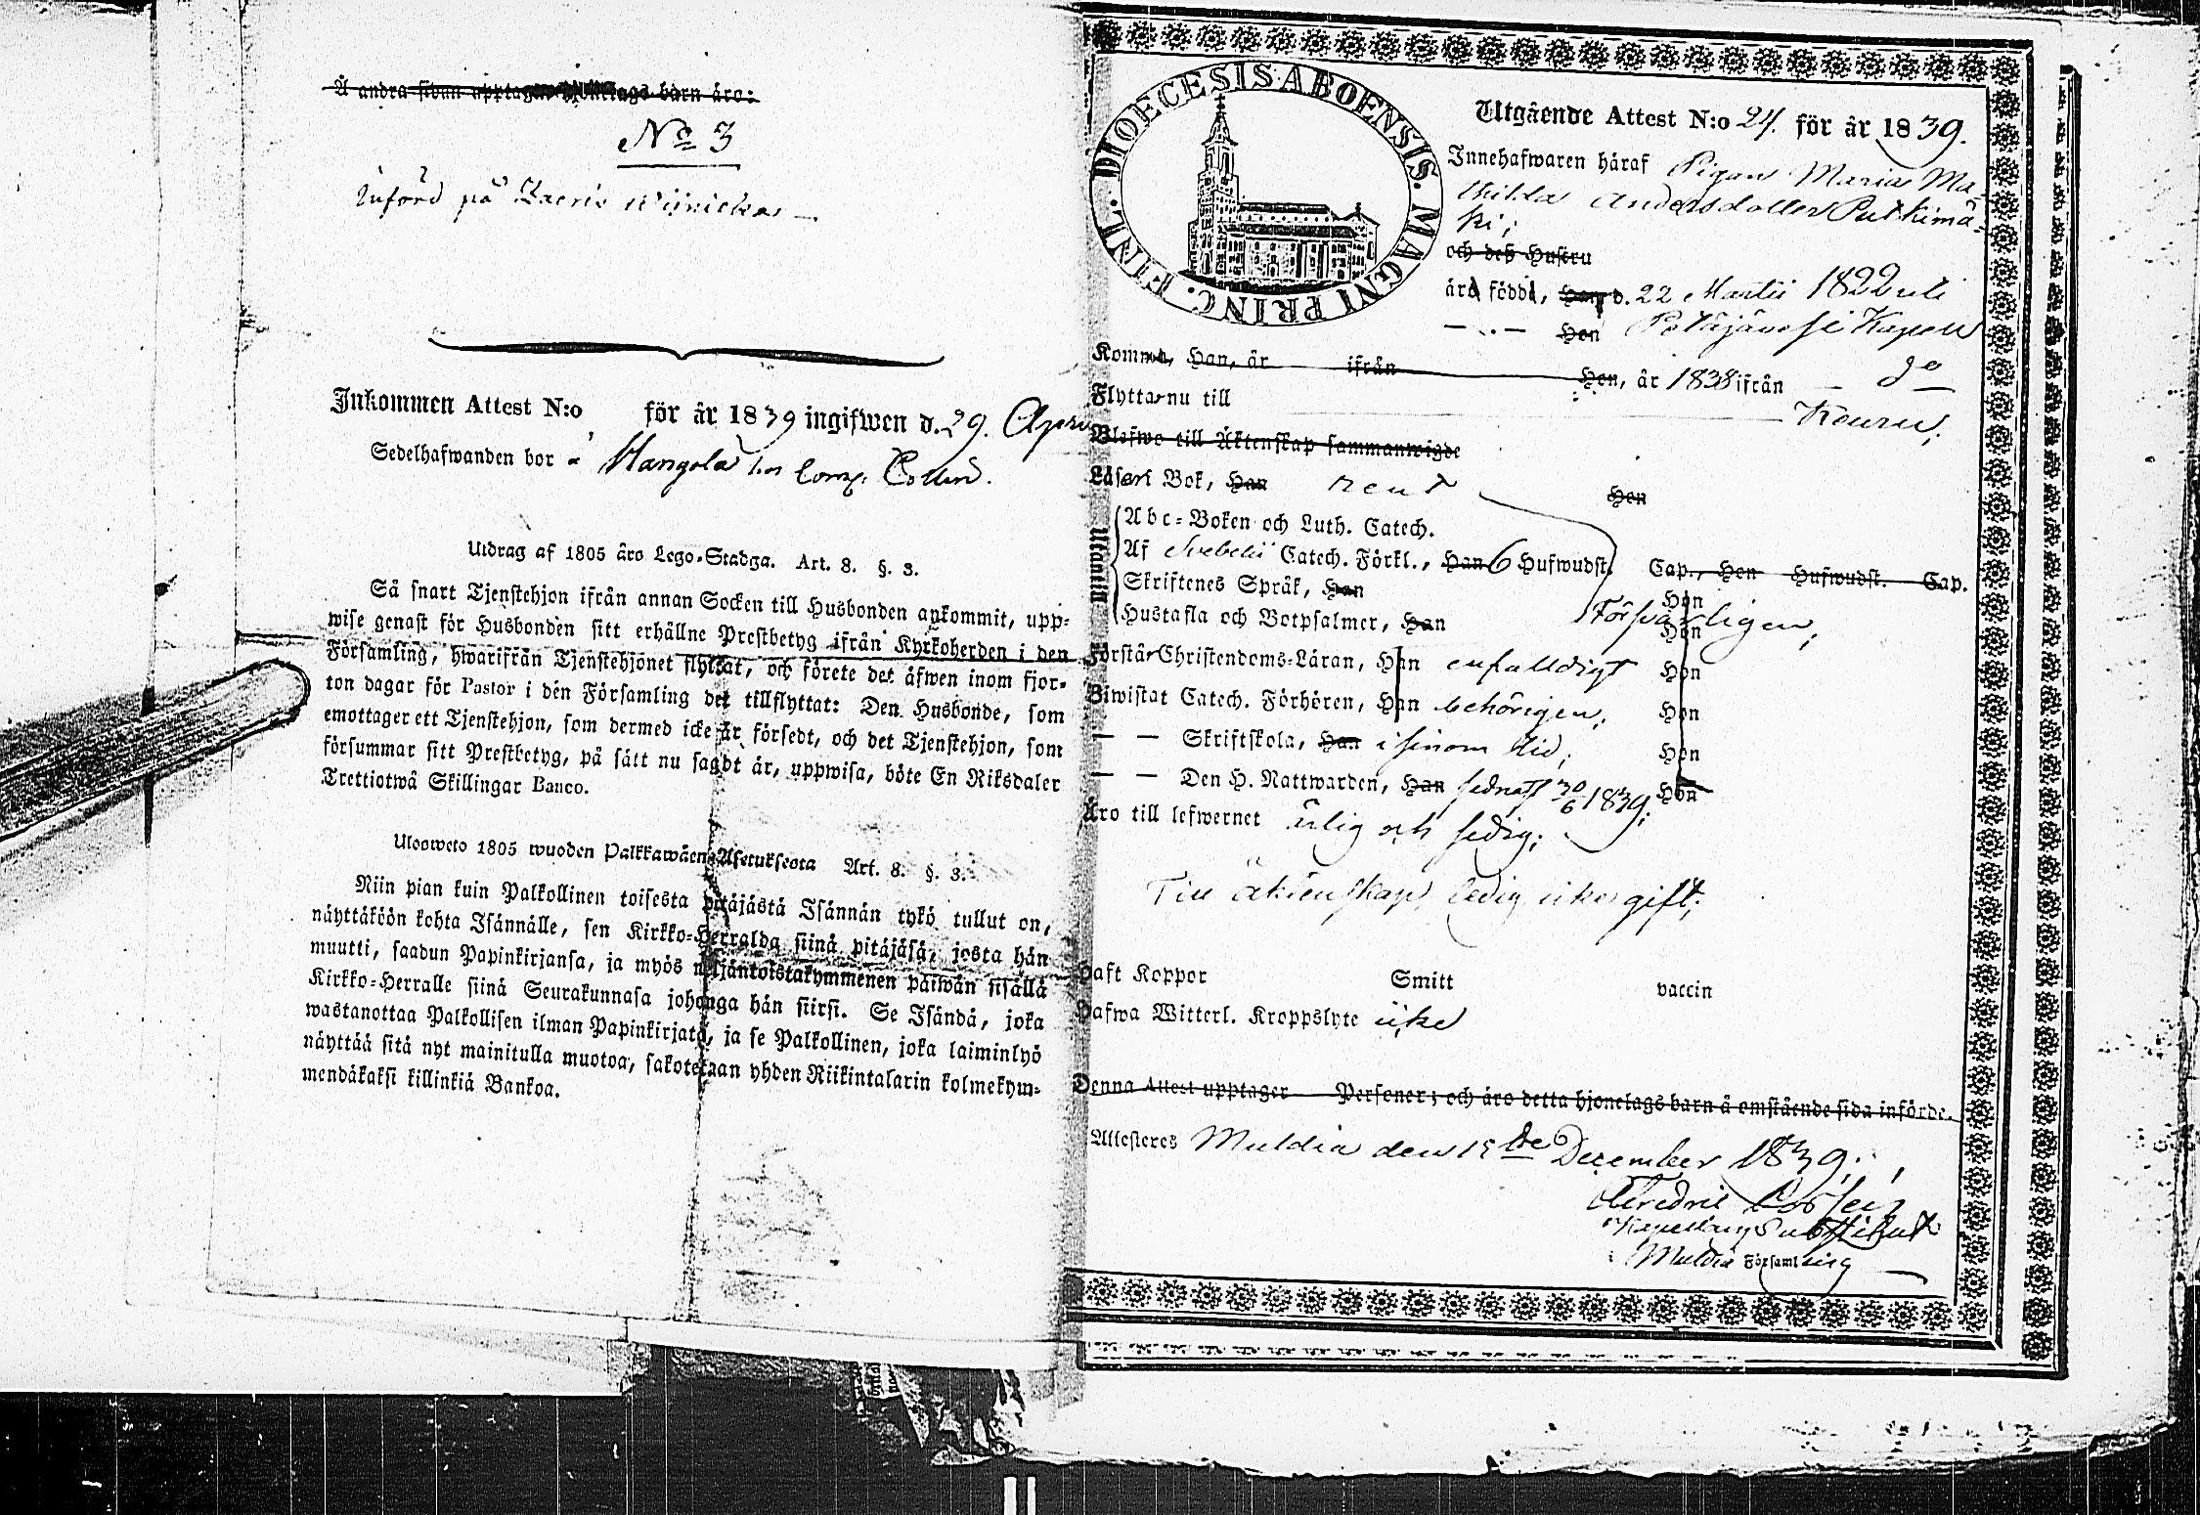 Å andra sidan upptagne Hjonelags barn äro:
No 3
Införd på
Inkommen Attest N:o för år 1839 ingifwen d. 29. Apr
Sedelhafwanden bor å Mangola hos Collin.
Utdrag af 1805 års Lego-Stadga. Art. 8. §. 3.
Så snart Tjenstehjon ifrån annan Socken till Husbonden ankommit, upp-
wise genast för Husbonden sitt erhållne Prestbetyg ifrån Kyrkoherden i den
Församling, hwarifrån Tjenstehjonet flyttat, och förete det äfwen inom fjor-
ton dagar för Pastor i den Församling det tillflyttat: Den Husbonde, som
emottager ett Tjenstehjon, som dermed icke är försedt, och det Tjenstehjon, som
försummar sitt Prestbetyg, på sätt nu sagdt är, uppwisa, böte En Riksdaler
Trettiotwå Skillingar Banco.
Ulosweto 1805 wuoden Palkkawäen-Asetuksesta Art. 8. §. 3.
Niin pian kuin Palkollinen toisesta pitäjästä Isännän tykö tullut on,
näyttäköön kohta Isännälle, sen Kirkko-Herralda siinä pitäjäsä, josta hän
muutti, saadun Papinkirjansa, ja myös neljäntoistakymmenen päiwän sisällä
Kirkko-Herralle siinä Seurakunnasa johonga hän siirsi. Se Isändä, joka
wastanottaa Palkollisen ilman Papinkirjata, ja se Palkollinen, joka laiminlyö
näyttää sitä nyt mainitulla muotoa, sakotetaan yhden Riikintalarin kolmekym-
mendäkaksi killinkiä Bankoa.
DIOECESIS ABOENSIS. MAGNI PRINC. FINL.
Utgående Attest N:o 24. för år 1839.
Innehafwaren häraf Pigan Maria Ma-
thilda Andersdotter Putkimä-
ki;
och deß Hustru
äro födde, Han d. 22 Martii 1822 uti
— . — Hon Petäjävesi Kapell
Komma, Han, år ifrån Hon, år 1838 ifrån — do
Flytta nu till — Keuru;
Blefwo till Äktenskap sammanwigde
Läsa i Bok, Han rent Hon
Utantill
Abc-Boken och Luth. Catech.
Af Svebelii Catech. Förkl., Han 6 Hufwudst. Cap., Hon Hufwudst. Cap.
Skriftenes Språk, Han Hon
Hustafla och Botpsalmer, Han Försvarligen; Hon
Förstår Christendoms-Läran, Han enfalldigt Hon
Biwistat Catech. Förhören, Han behörigen; Hon
— — Skriftskola, Han i sinom tid; Hon
— — Den H. Nattwarden, Han sednast 30/6 1839; Hon
Äro till lefwernet ärlig och sedig;
Till äktenskap ledig icke gift;
Haft Koppor Smitt vaccin
Hafwa Witterl. Kroppslyte icke
Denna Attest upptager Personer; och äro detta hjonelags barn å omstående sida införde.
Attesteras Muldia den 15de December 1839;
Fredric
Kapellans Substitut
Muldia Församling